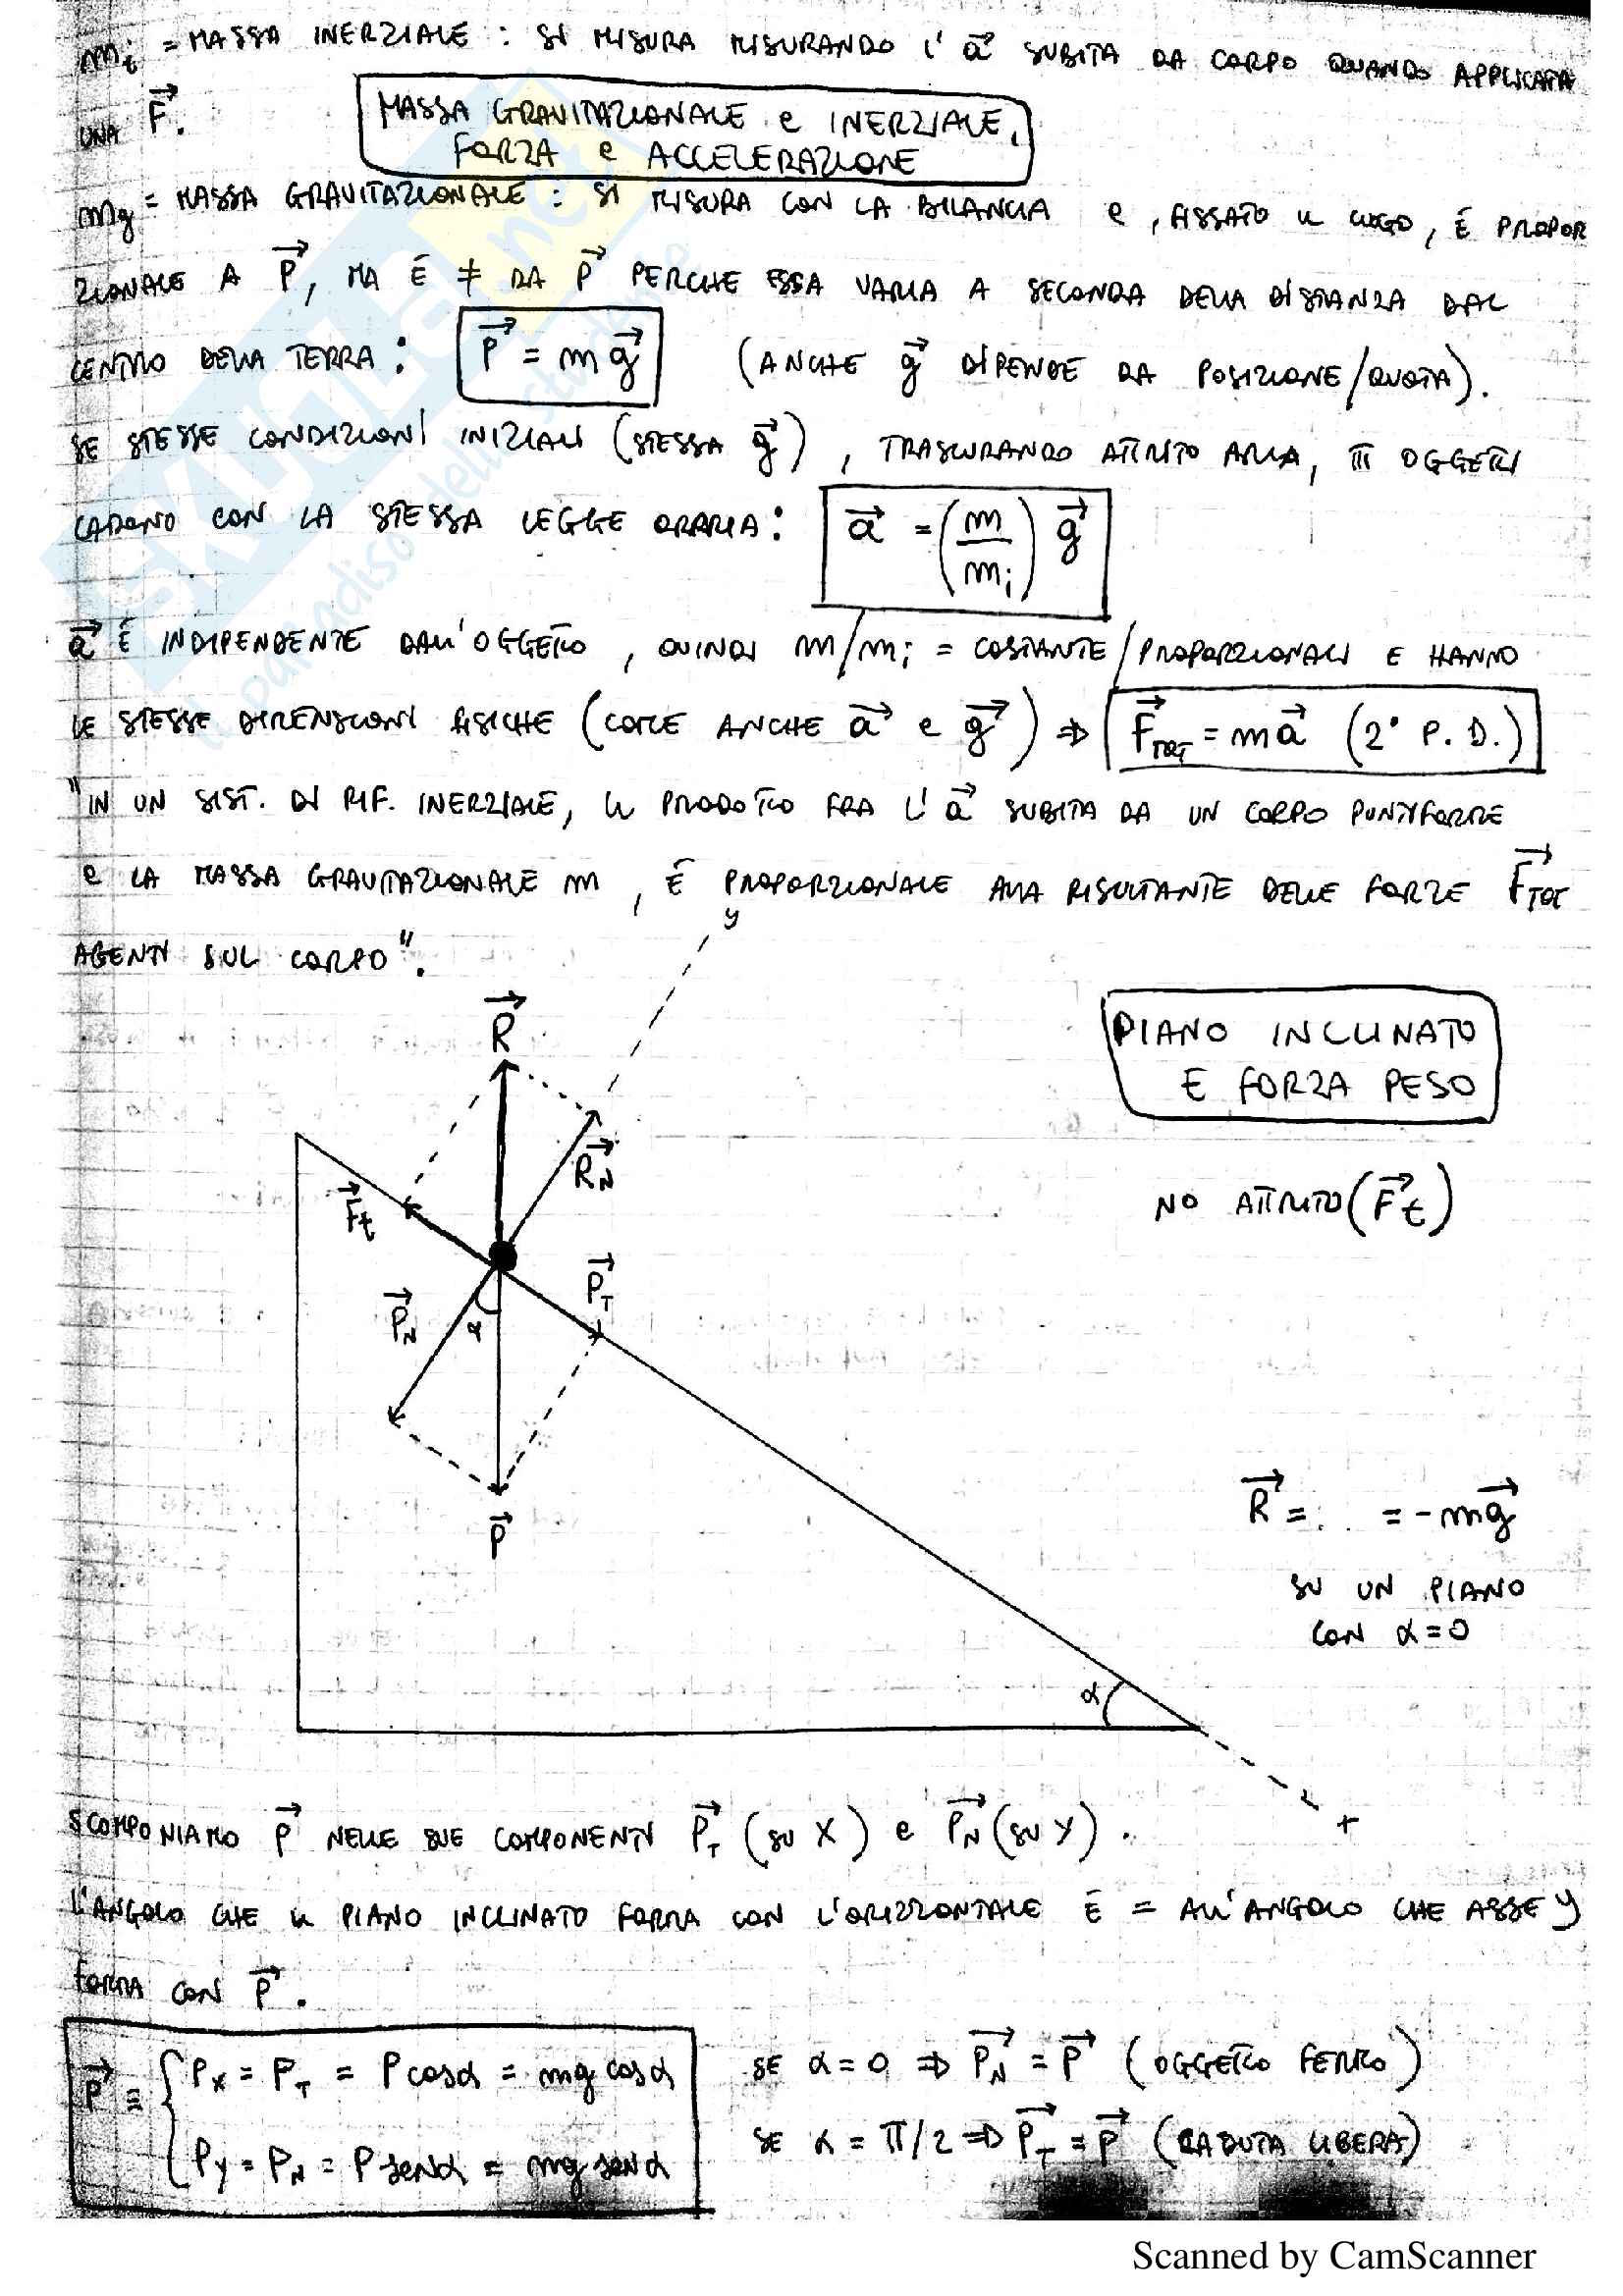 mi = MASSA INERZIALE : SI MISURA MISURANDO L' a⃗ SUBITA DA CORPO QUANDO APPLICATA
UNA F⃗.
MASSA GRAVITAZIONALE e INERZIALE,
FORZA e ACCELERAZIONE
mg = MASSA GRAVITAZIONALE : SI MISURA CON LA BILANCIA e, FISSATO IL LUOGO, È PROPOR
ZIONALE A P⃗, MA È ≠ DA P⃗ PERCHE ESSA VARIA A SECONDA DELLA DISTANZA DAL
CENTRO DELLA TERRA : P⃗ = m g⃗ (ANCHE g⃗ DIPENDE DA POSIZIONE/QUOTA).
SE STESSE CONDIZIONI INIZIALI (STESSA g⃗), TRASCURANDO ATTRITO ARIA, TT OGGETTI
CADONO CON LA STESSA LEGGE ORARIA : a⃗ = (m/mi) g⃗
a⃗ È INDIPENDENTE DALL'OGGETTO, QUINDI m/mi = COSTANTE/PROPORZIONALI E HANNO
LE STESSE DIMENSIONI FISICHE (COME ANCHE a⃗ e g⃗) ⇒ F⃗TOT = m a⃗ (2° P. D.)
"IN UN SIST. DI RIF. INERZIALE, IL PRODOTTO FRA L' a⃗ SUBITA DA UN CORPO PUNTIFORME
e LA MASSA GRAVITAZIONALE m, È PROPORZIONALE ALLA RISULTANTE DELLE FORZE F⃗TOT
AGENTI SUL CORPO".
y
R⃗
PIANO INCLINATO
E FORZA PESO
R⃗N
F⃗t
NO ATTRITO (F⃗t)
P⃗T
P⃗N
α
P⃗
R⃗ = = - m g⃗
SU UN PIANO
CON α = 0
α
x
SCOMPONIAMO P⃗ NELLE SUE COMPONENTI P⃗T (SU X) e P⃗N (SU Y).
L'ANGOLO CHE IL PIANO INCLINATO FORMA CON L'ORIZZONTALE È = ALL'ANGOLO CHE ASSE y
FORMA CON P⃗.
P⃗ ≡ { Px = PT = P cosα = mg cosα
Py = PN = P senα = mg senα
SE α = 0 ⇒ P⃗N = P⃗ (OGGETTO FERMO)
SE α = π/2 ⇒ P⃗T = P⃗ (CADUTA LIBERA)
Scanned by CamScanner
SKUOLA.net
il paradiso dello studente